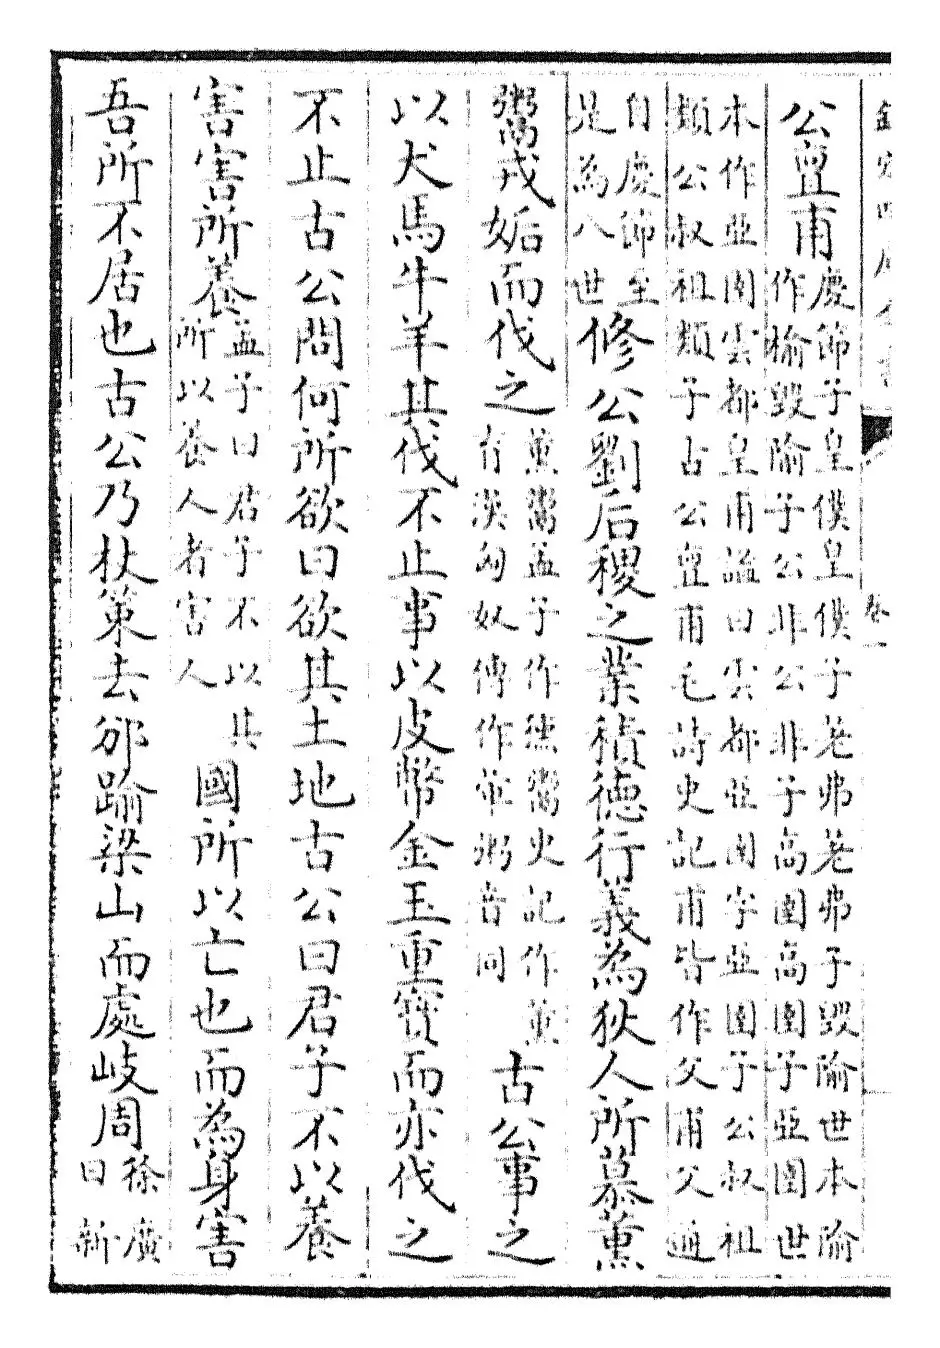 欽定四庫全書 卷一
公亶甫慶節子皇僕皇僕子差弗差弗子毀隃世本隃作榆毀隃子公非公非子高圉高圉子亞圉世
本作亞圉雲都皇甫謐曰雲都亞圉字亞圉子公叔祖類公叔祖類子古公亶甫毛詩史記甫皆作父甫父通
自慶節至是為八世修公劉后稷之業積德行義為狄人所慕薰
鬻戎姤而伐之薰鬻孟子作獯鬻史記作薰育漢匈奴傳作葷粥音同古公事之
以犬馬牛羊其伐不止事以皮幣金玉重寳而亦伐之
不止古公問何所欲曰欲其土地古公曰君子不以養
害害所養孟子曰君子不以其所以養人者害人國所以亡也而為身害
吾所不居也古公乃杖策去邠踰梁山而處岐周徐廣曰新